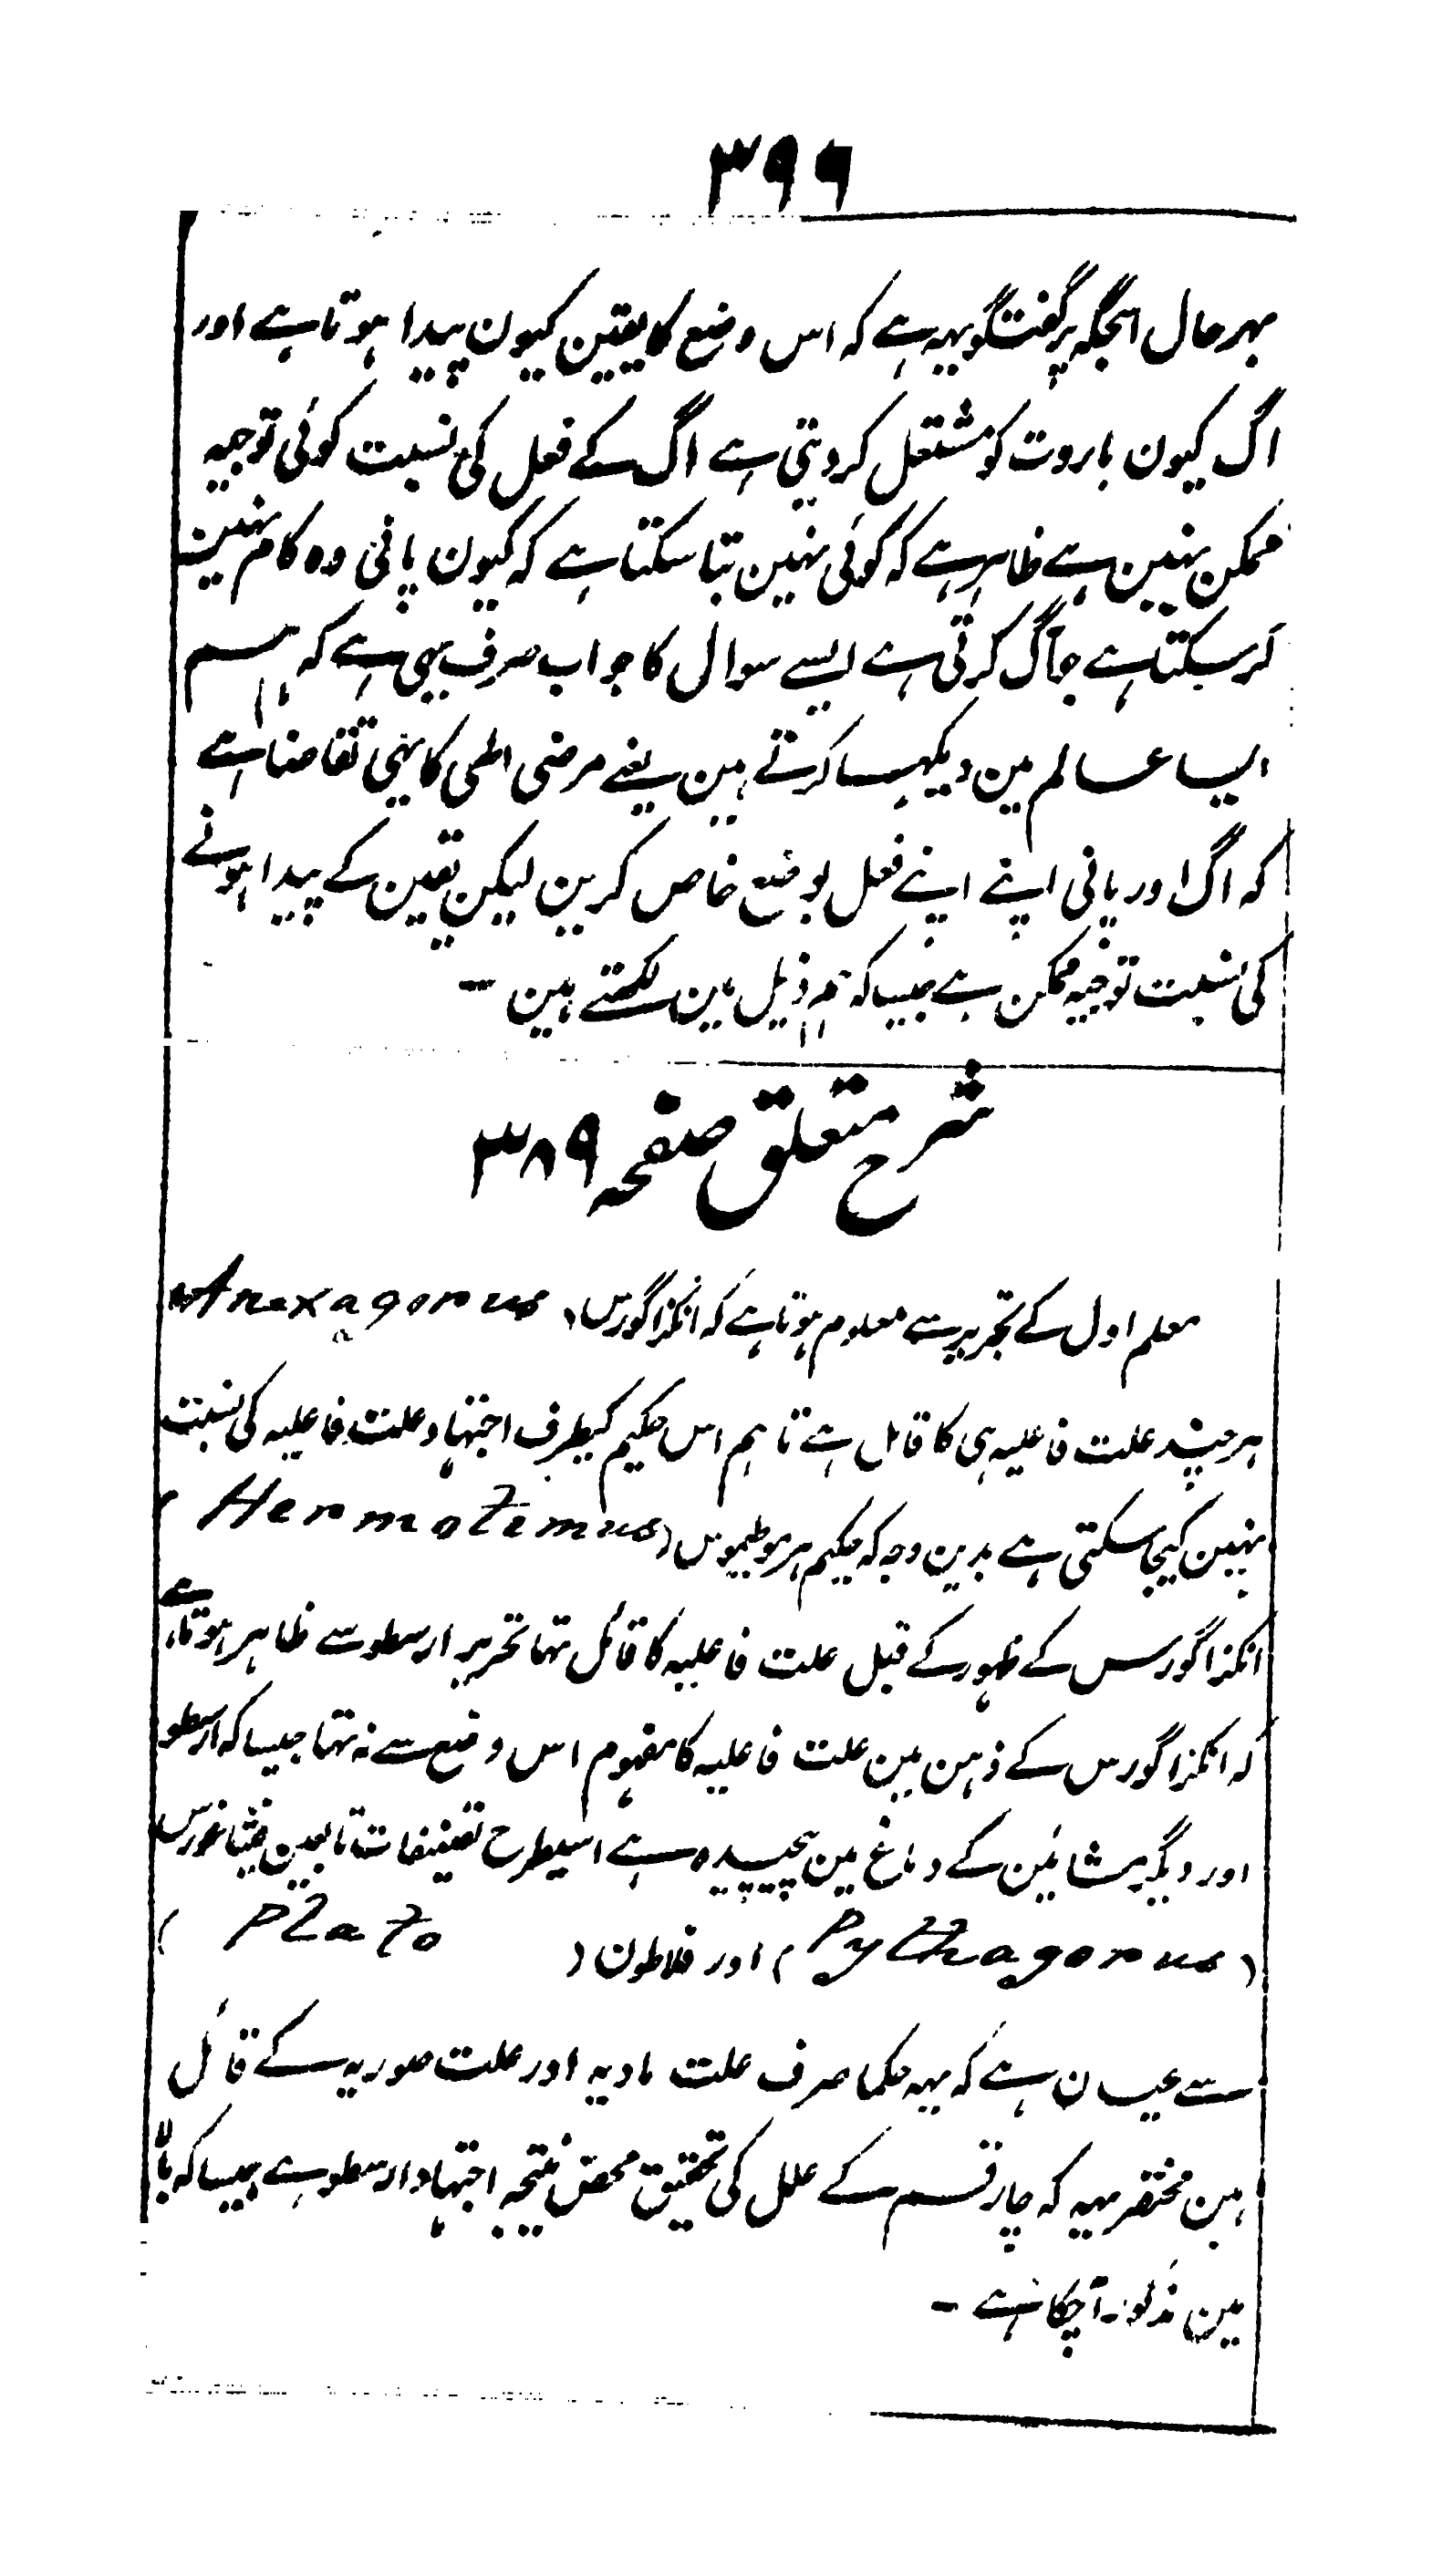 ۳۹۶
بہرحال اسجگہ پر گفتگو یہہ ہے کہ اس وضع کا یقین کیون پیدا ہوتا ہے اور
اگ کیون باروت کو مشتعل کردیتی ہے اگ کے فعل کی نسبت کوئی توجیہ
ممکن نہین ہے ظاہر ہے کہ کوئی نہین بتا سکتا ہے کہ کیون پانی وہ کام نہین
کر سکتا ہے جو آگ کرتی ہے ایسے سوال کا جواب صرف یہی ہے کہ ہم
ایسا عالم مین دیکہا کرتے ہین یعنے مرضی الٰہی کا یہی تقاضا ہے
کہ اگ اور پانی اپنے اپنے فعل بوضع خاص کرین لیکن یقین کے پیدا ہونے
کی نسبت توجیہ ممکن ہے جیسا کہ ہم ذیل مین لکھتے ہین ۔
شرح متعلق صفحہ ۳۸۹
معلم اول کے تحریر سے معلوم ہوتا ہے کہ انکزاگورس (Anaxagorus
ہرچند علت فاعلیہ ہی کا قائل ہے تاہم اس حکیم کیطرف اجتہاد علت فاعلیہ کی نسبت
نہین کیجا سکتی ہے بدین وجہ کہ حکیم ہرموطیموس (Hermotemus)
انکزاگورس کے ظہور کے قبل علت فاعلیہ کا قائل تہا تحریر ارسطو سے ظاہر ہوتا ہے
کہ انکزاگورس کے ذہن مین علت فاعلیہ کا مفہوم اس وضع سے نہ تہا جیسا کہ ارسطو
اور دیگر مشائین کے دماغ مین پیچیدہ ہے اسیطرح تصنیفات تابعین فیثاغورس
(Pythagorus) اور فلاطون (Plato)
سے عیان ہے کہ یہہ حکما صرف علت مادیہ اور علت صوریہ کے قائل
ہین مختصر یہہ کہ چار قسم کے علل کی تحقیق محض نتیجہ اجتہاد ارسطو ہے جیسا کہ بالا
مین مذکور آچکا ہے ۔